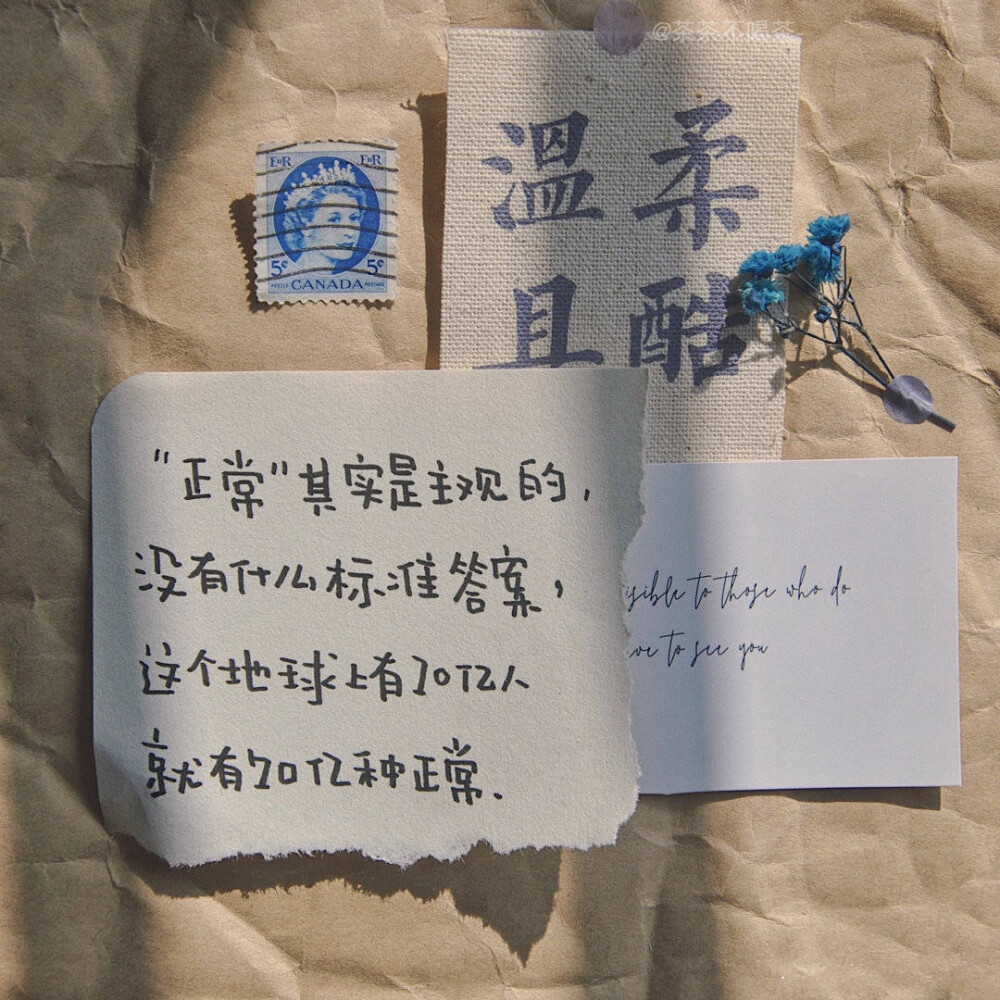 @茶茶不喝茶
EIIR EIIR
5¢ 5¢
POSTES CANADA POSTAGE
温柔
且酷
"正常"其实是主观的,
没有什么标准答案,
这个地球上有70亿人
就有70亿种正常.
to those who do
to see you